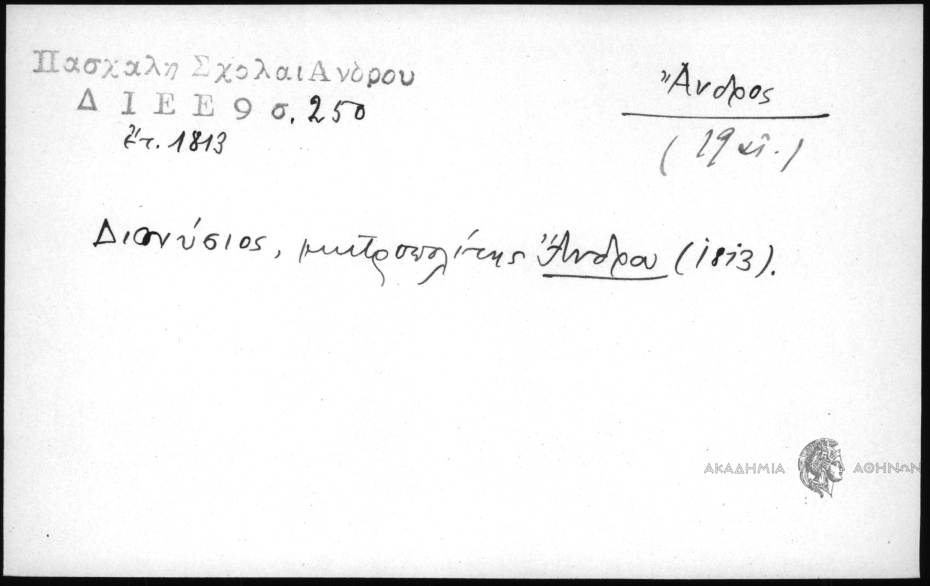 Πασχαλη Σχολαι Ανδρου
Δ Ι Ε Ε 9 σ. 250
ἔτ. 1813
Ἄνδρος
(19 αἰ.)
Διονύσιος, μητροπολίτης Ἄνδρου (1813).
ΑΚΑΔΗΜΙΑ ΑΘΗΝΩΝ